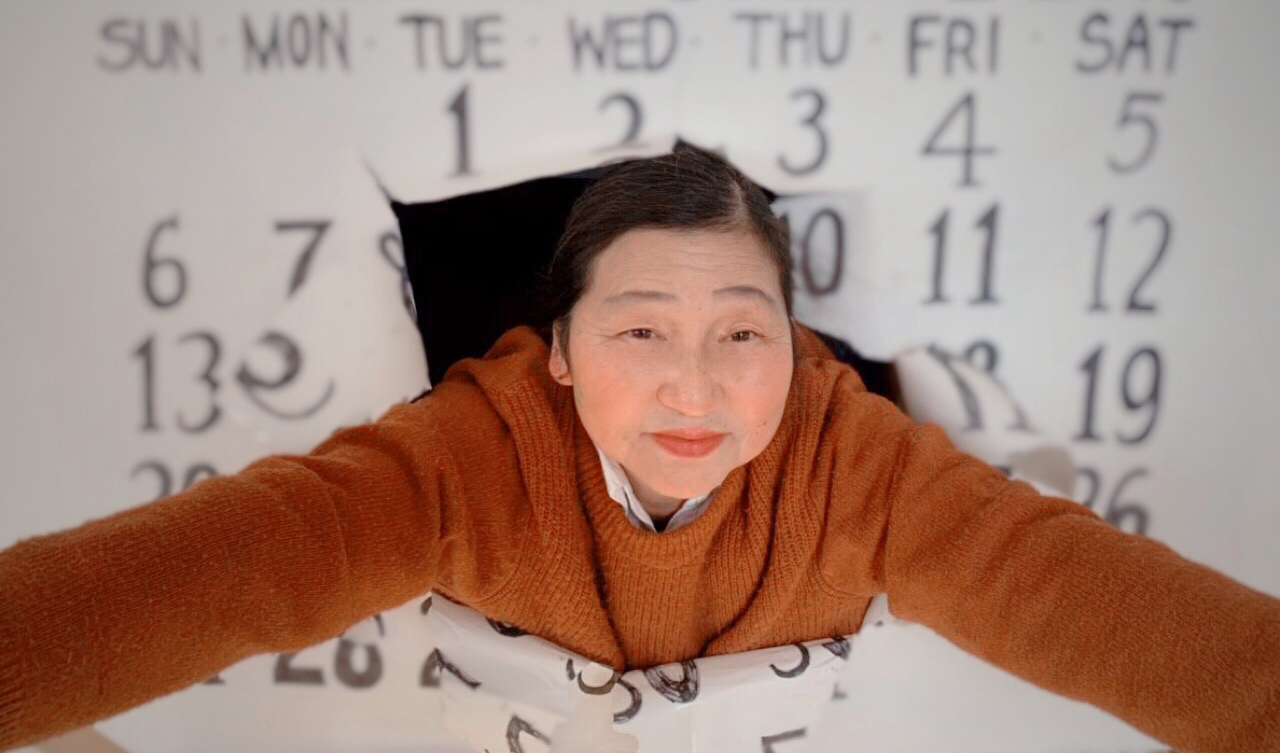 SUN · MON · TUE · WED · THU · FRI · SAT
1 2 3 4 5
6 7 8 10 11 12
13 18 19
20 26
28